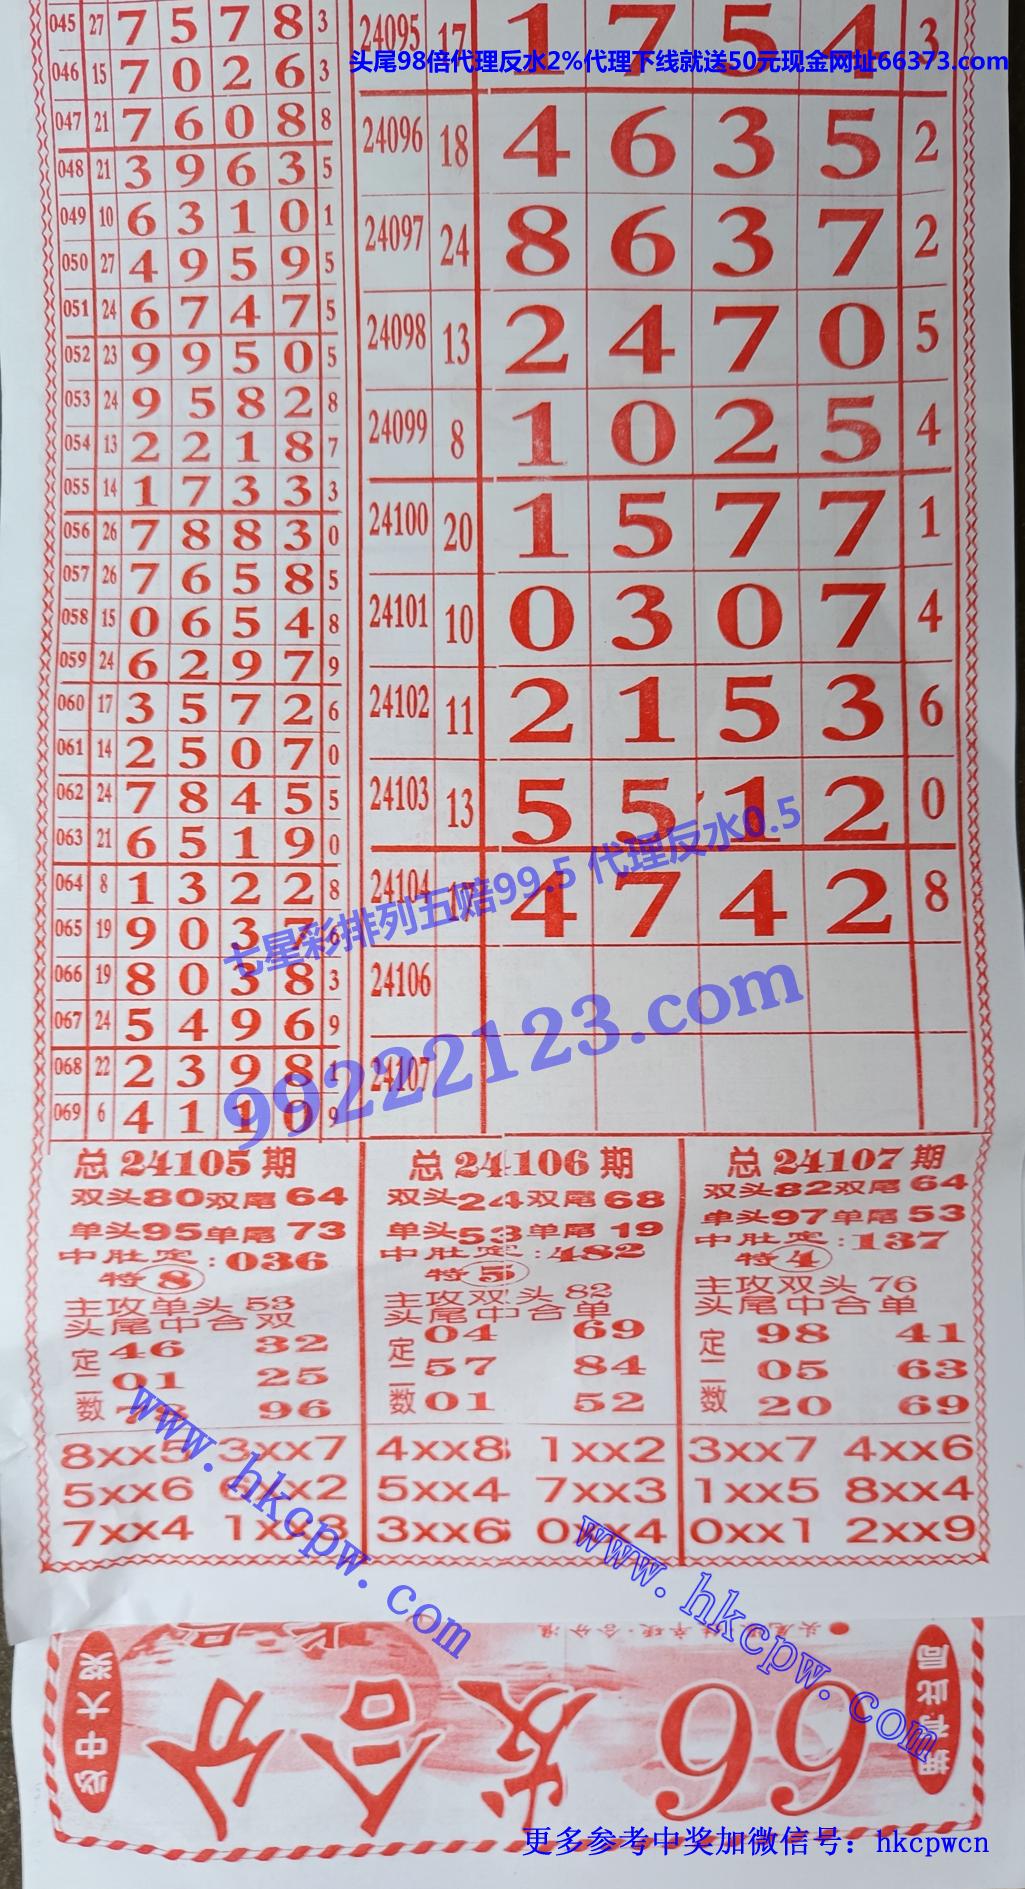 045 27 7 5 7 8 3
046 15 7 0 2 6 3
047 21 7 6 0 8 8
048 21 3 9 6 3 5
049 10 6 3 1 0 1
050 27 4 9 5 9 5
051 24 6 7 4 7 5
052 23 9 9 5 0 5
053 24 9 5 8 2 8
054 13 2 2 1 8 7
055 14 1 7 3 3 3
056 26 7 8 8 3 0
057 26 7 6 5 8 5
058 15 0 6 5 4 8
059 24 6 2 9 7 9
060 17 3 5 7 2 6
061 14 2 5 0 7 0
062 24 7 8 4 5 5
063 21 6 5 1 9 0
064 8 1 3 2 2 8
065 19 9 0 3 7 6
066 19 8 0 3 8 3
067 24 5 4 9 6 9
068 22 2 3 9 8 1
069 6 4 1 1 0 9
24095 17 1 7 5 4 3
头尾98倍代理反水2%代理下线就送50元现金网址66373.com
24096 18 4 6 3 5 2
24097 24 8 6 3 7 2
24098 13 2 4 7 0 5
24099 8 1 0 2 5 4
24100 20 1 5 7 7 1
24101 10 0 3 0 7 4
24102 11 2 1 5 3 6
24103 13 5 5 1 2 0
24104 17 4 7 4 2 8
24106
24107
七星彩排列五赔99.5 代理反水0.5
99222123.com
总24105期
双头80双尾64
单头95单尾73
中肚定:036
特8
主攻单头53
头尾中合双
定二数
46 32
01 25
78 96
8xx5 3xx7
5xx6 6xx2
7xx4 1xx8
总24106期
双头24双尾68
单头53单尾19
中肚定:482
特5
主攻双头82
头尾中合单
定二数
04 69
57 84
01 52
4xx8 1xx2
5xx4 7xx3
3xx6 0xx4
总24107期
双头82双尾64
单头97单尾53
中肚定:137
特4
主攻双头76
头尾中合单
定二数
98 41
05 63
20 69
3xx7 4xx6
1xx5 8xx4
0xx1 2xx9
www.hkcpw.com
www.hkcpw.com
必中大奖
66发合分
更多参考中奖加微信号：hkcpwcn